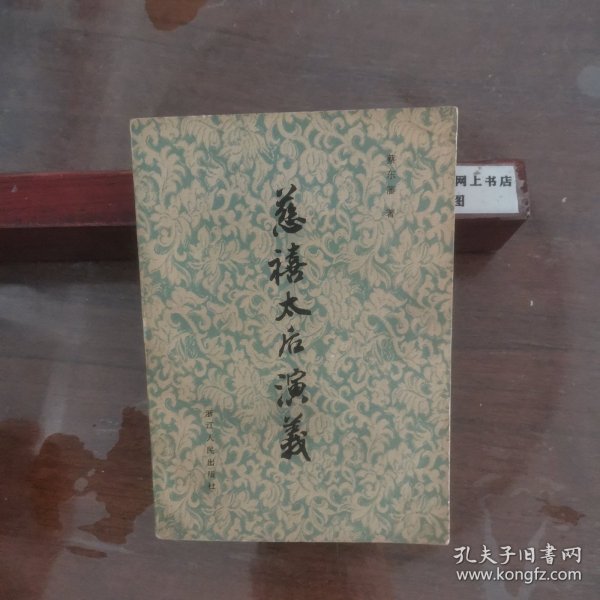 蔡东藩 著
慈禧太后演義
浙江人民出版社
网上书店
图
孔夫子旧书网
www.kongfz.com